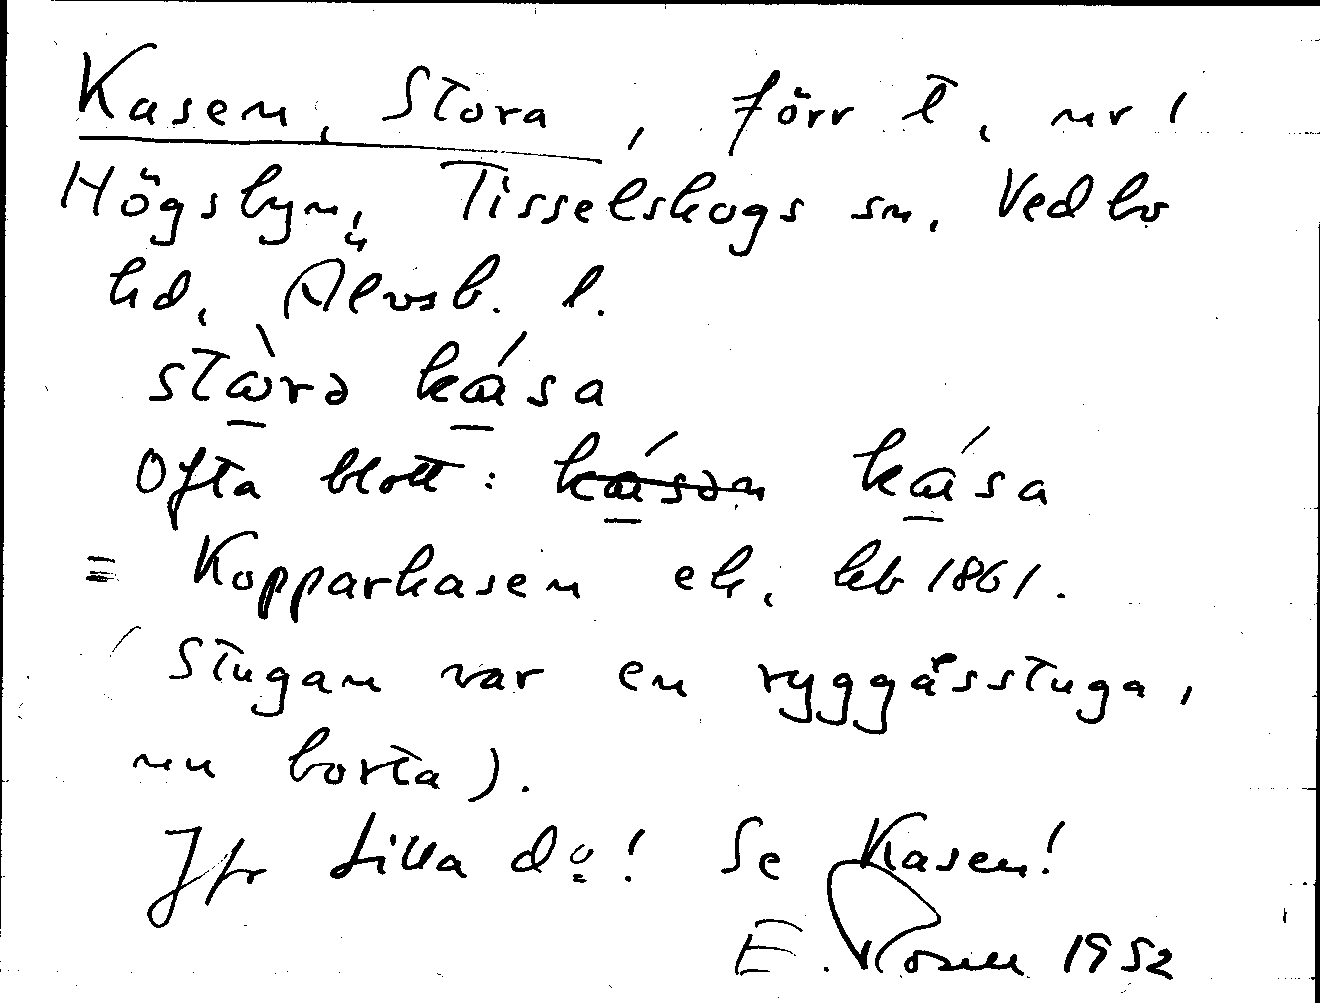 Kasen, Stora, förr t. nr 1
Högsbyn, Tisselskogs sn, Vedbo
hd, Älvsb. l.
stɷ̀rə kɑ́sa
Ofta blott: kɑ́sən kɑ́sa
= Kopparkasen ek. kb 1861.
(Stugan var en ryggåsstuga,
nu borta).
Jfr Lilla do! Se Kasen!
E. Rosell 1952